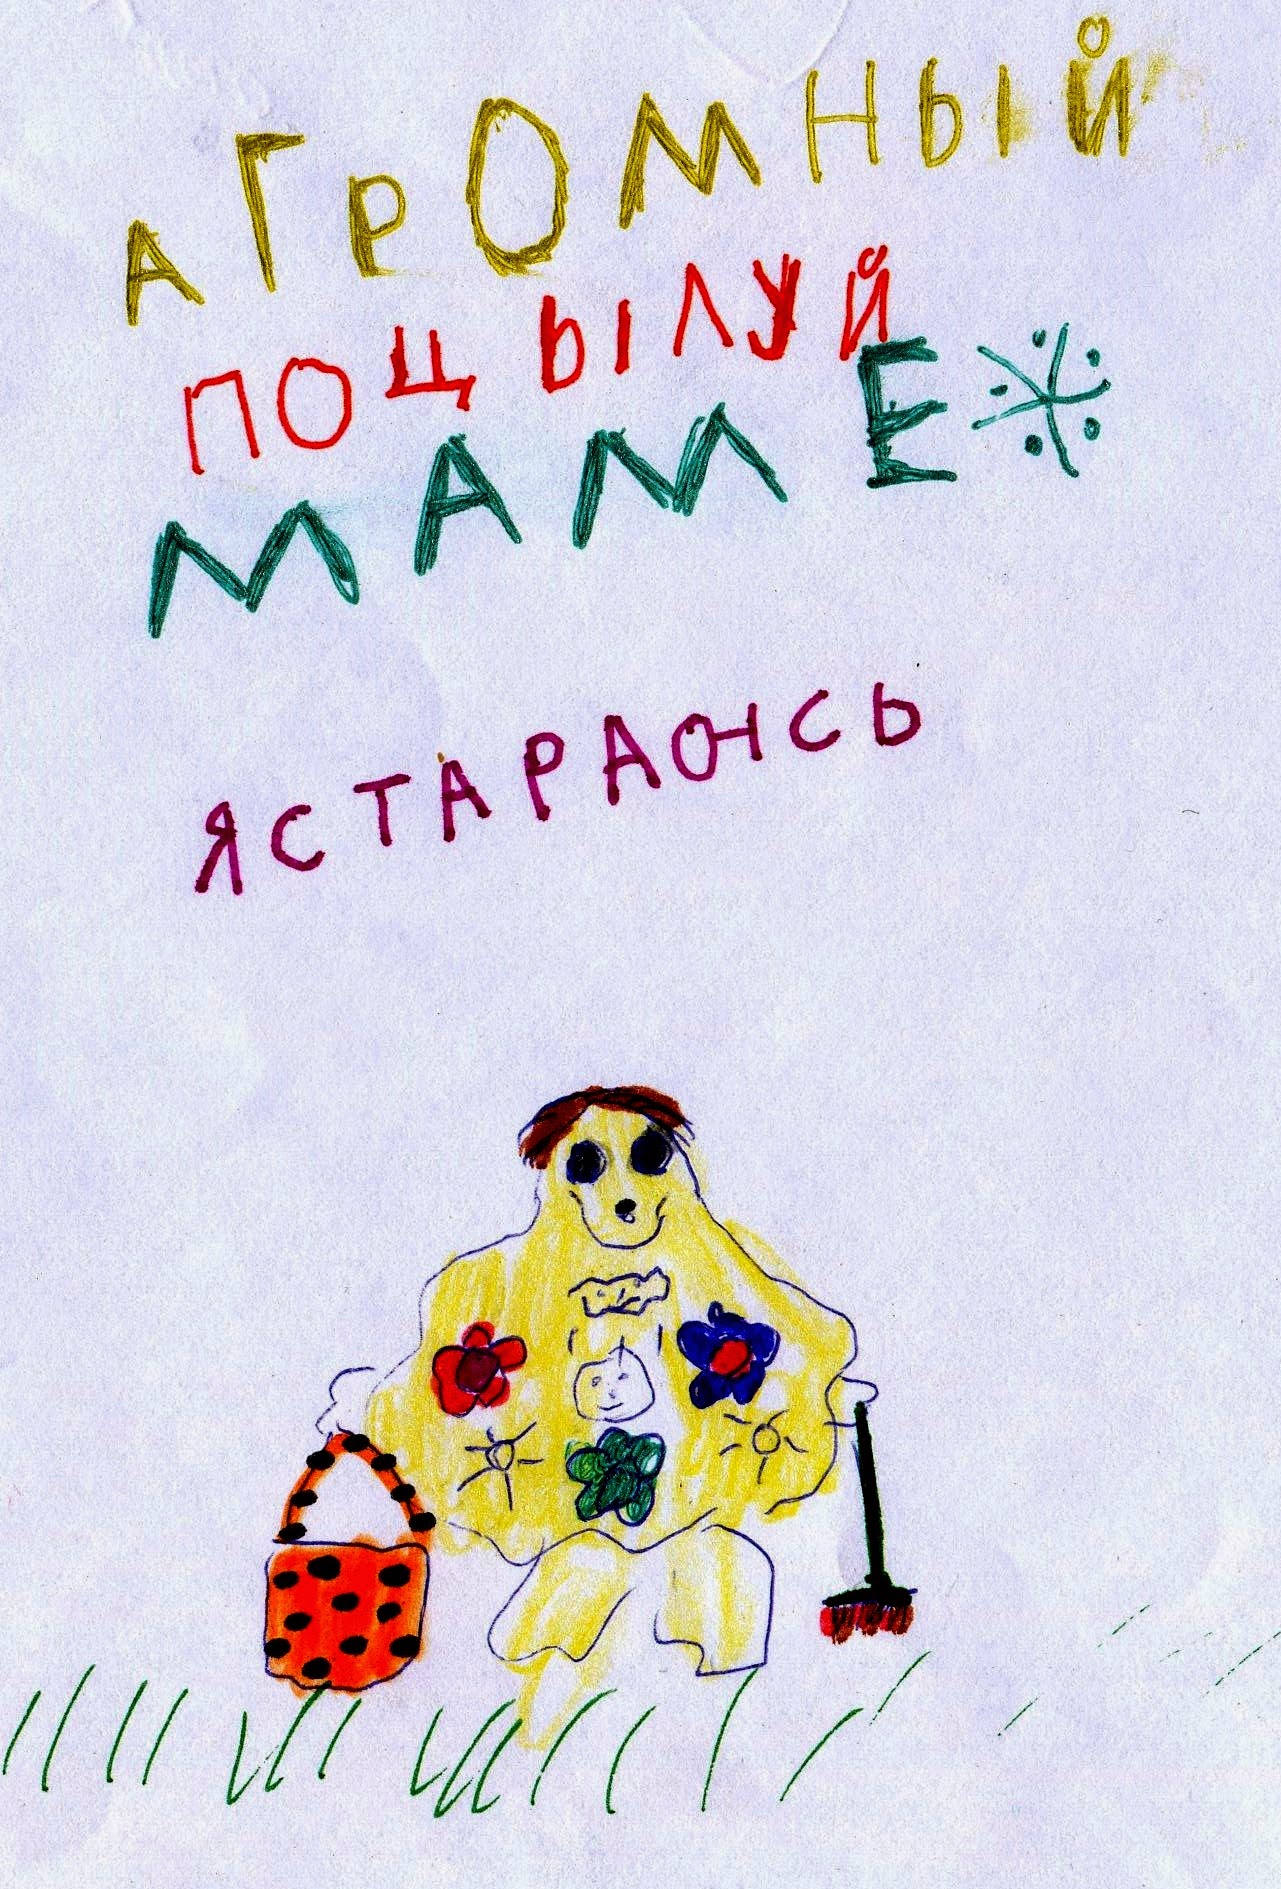 АГРОМНЫЙ
ПОЦЫЛУЙ
МАМЕ
ЯСТАРАЮСЬ